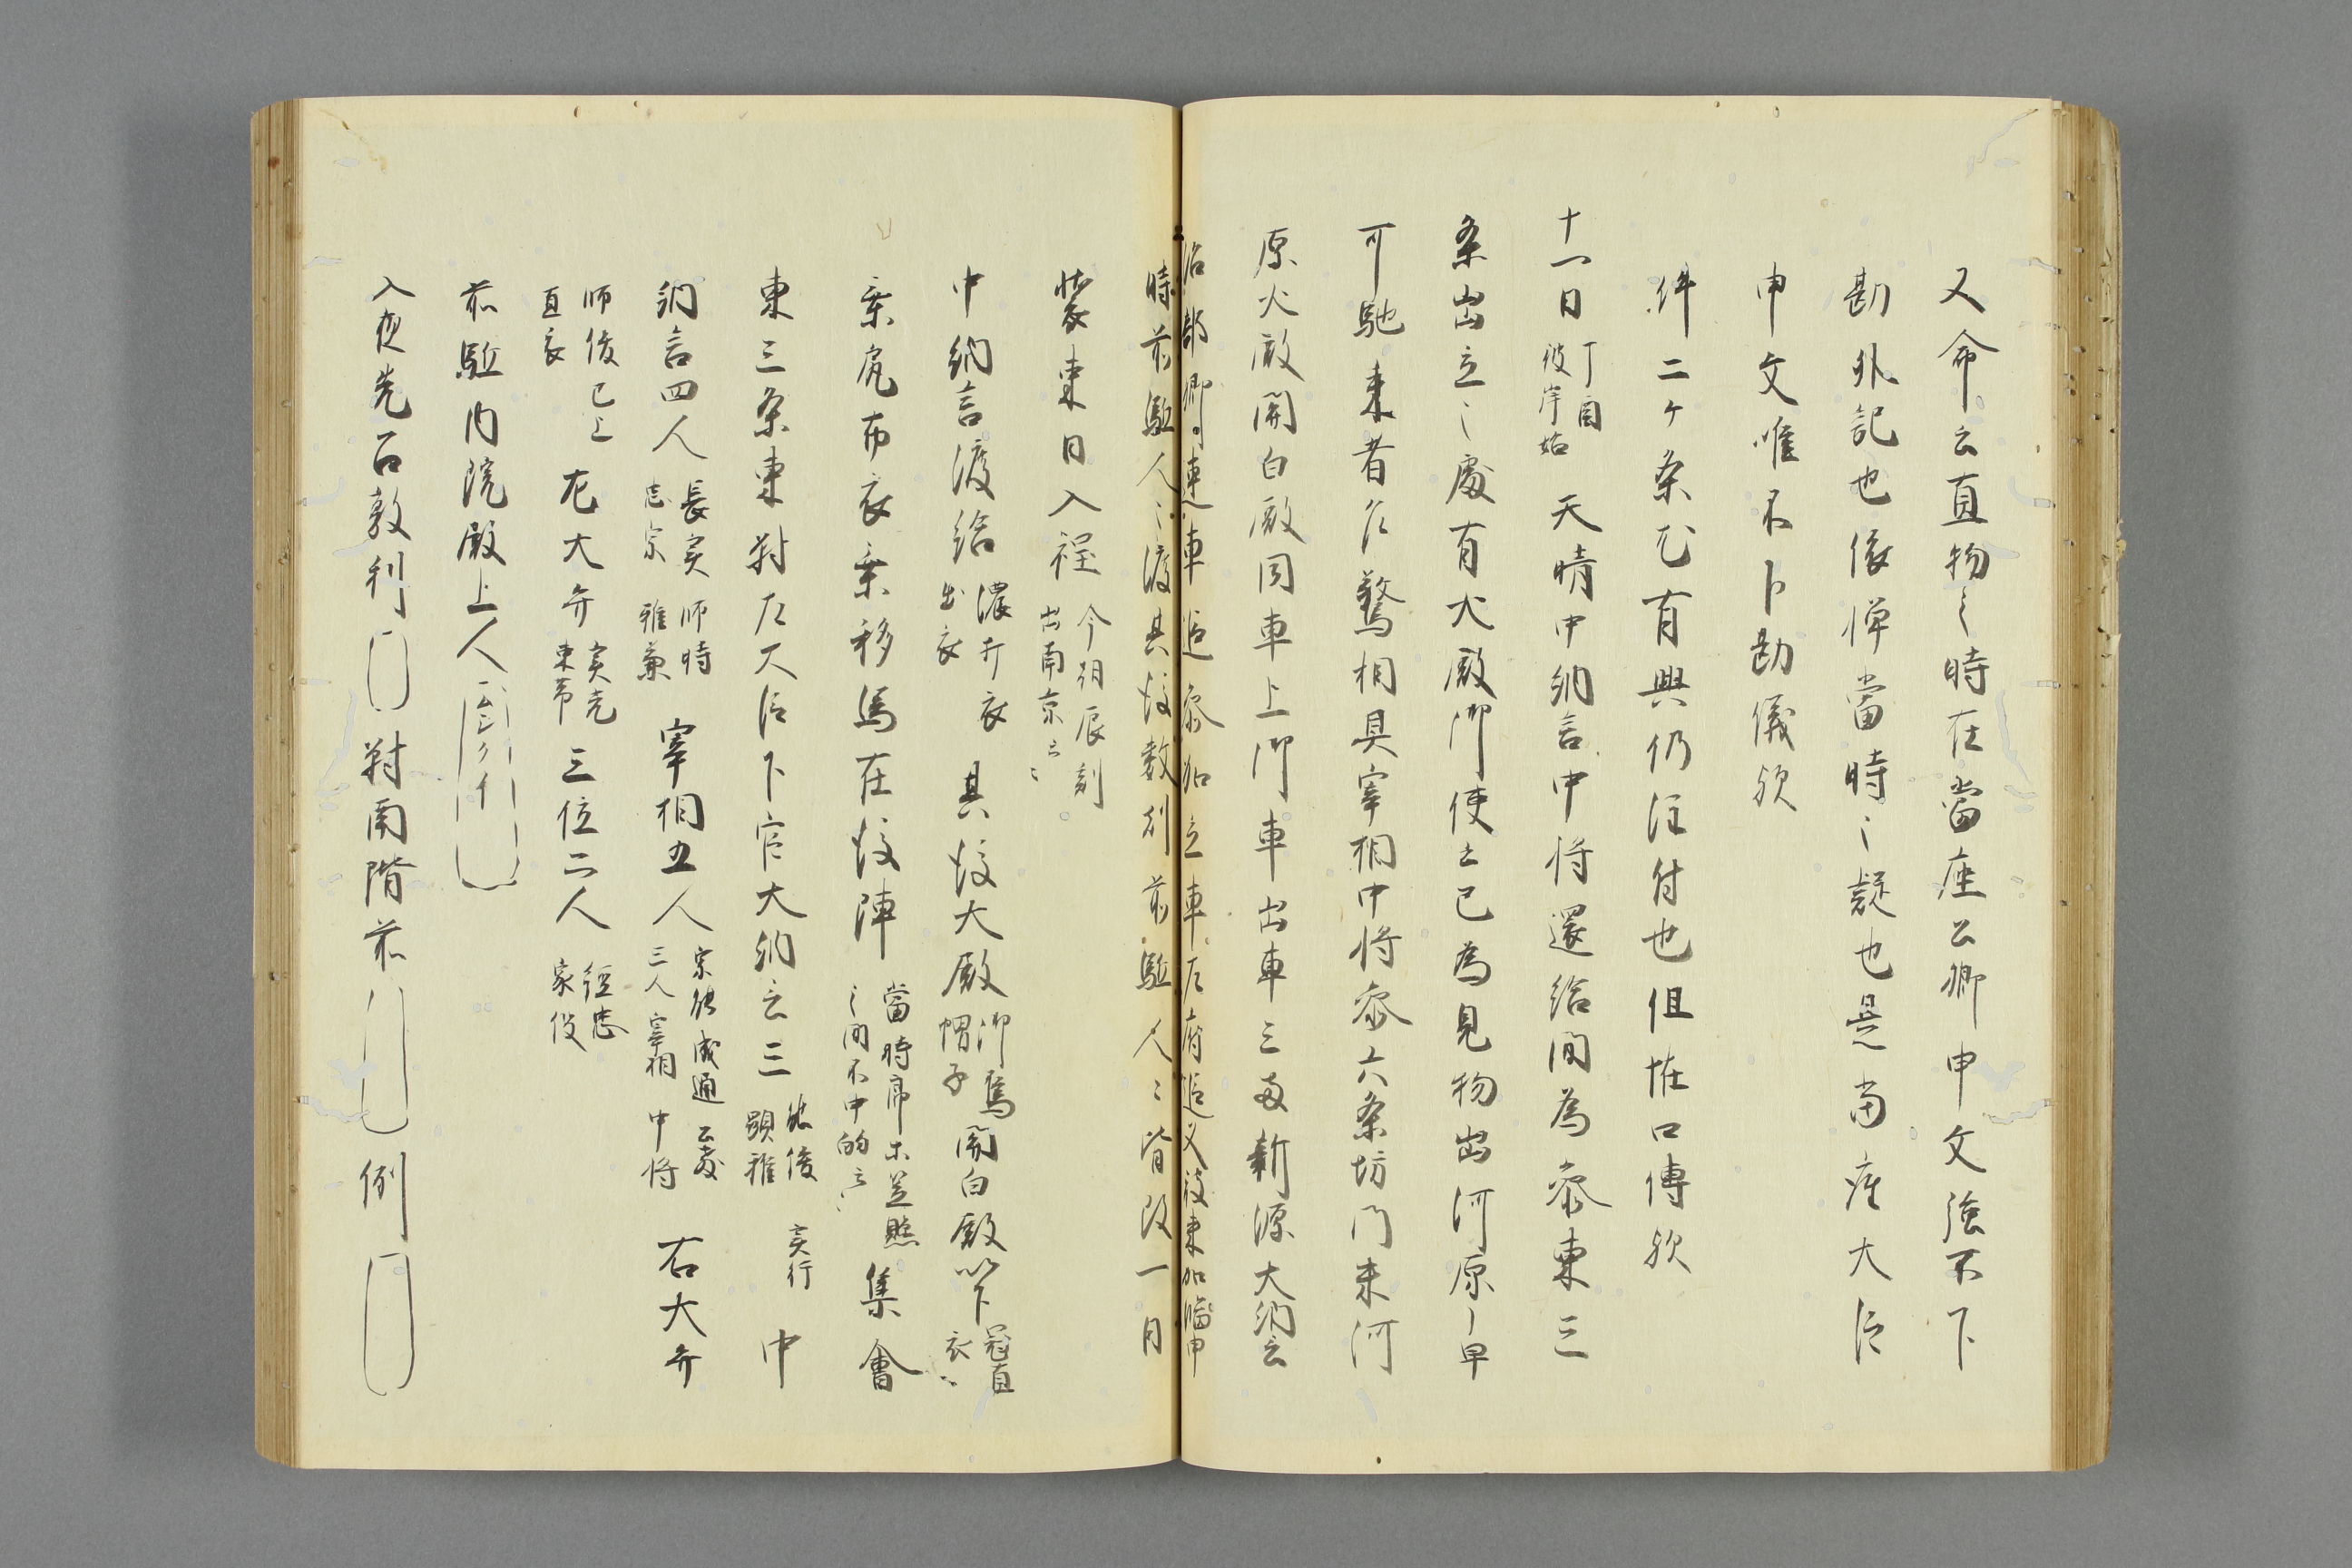 又命云直物之時在當座公卿申文強不下
勘外記也依憚當時之疑也是當座大臣
申文唯不下勘儀欤
件二ケ条尤有興仍注付也但恠口傳欤
十一日丁酉彼岸始 天晴中納言中将還給間為参東三
条出立之處有大殿御使云已為見物出河原了早
可馳来者乍驚相具宰相中将参六条坊門末河
原大殿関白殿同車上御車出車三両新源大納言
治部卿同連車追参加立車左府追又被来加臨申
時前駈人々渡其後数刻前駈人々皆改一日
装束日入程今朝辰刻出南京云々
中納言渡給濃打衣出衣 其後大殿御烏帽子関白殿以下冠直衣々
乗尻布衣乗移馬在後陣當時席未並照之間不中的云々集會
東三条東対左大臣下官大納言三能俊顕雅実行 中
納言四人長実忠宗師時雅兼 宰相五人宗能成通公教三人宰相中将 右大弁
師俊已上直衣 左大弁実光束帯 三位二人経忠家俊
前駈内院殿上人
入夜先召敦利 対南階前 例